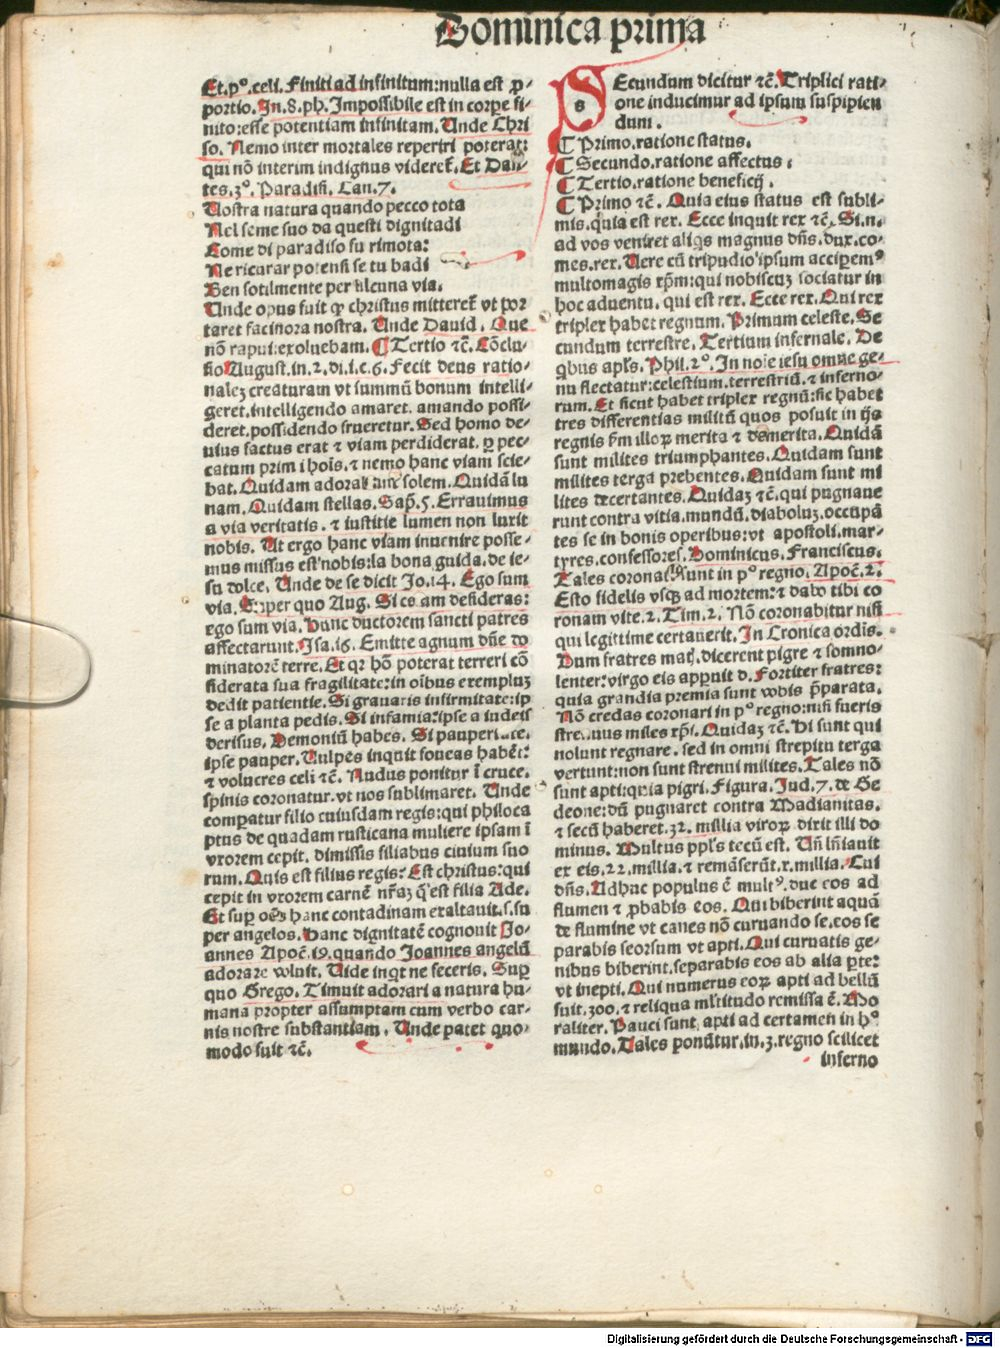 Dominica prima
Et.pº.celi. Finiti ad infinitum:nulla est ꝓ⸗
portio. In.8.ph. Impossibile est in corpe fi⸗
nito:esse potentiam infinitam. Unde Chri
so. Nemo inter mortales reperiri poterat:
qui nō interim indignus videret᷑. Et Dan⸗
tes.3º. Paradisi. Can.7.
Vostra natura quando pecco tota
Nel seme suo da questi dignitadi
Come di paradiso fu rimota:
Ne ricurar potensi se tu badi
Ben sotilmente per alcuna via.
Unde opus fuit ꝙ christus mitteret᷑ vt por
taret facinora nostra. Unde Dauid. Que
nō rapui:exoluebam. ¶ Tertio ⁊c̄. Cōclu⸗
sio August.in.2.di.i.c.6. Fecit deus ratio⸗
nalez creaturam vt summū bonum intelli⸗
geret.intelligendo amaret. amando possi⸗
deret.possidendo frueretur. Sed homo de⸗
uius factus erat ⁊ viam perdiderat. ꝑ pec⸗
catum primi hoīs.⁊ nemo hanc viam scie⸗
bat. Quidam adorabant solem. Quidā lu
nam. Quidam stellas. Sap̄.5. Errauimus
a via veritatis. ⁊ iustitie lumen non luxit
nobis. Ut ergo hanc viam inuenire posse⸗
mus missus est nobis:la bona guida. de ie⸗
su dolce. Unde de se dicit Jo.14. Ego sum
via. Super quo Aug. Si es am desideras:
ego sum via. Hunc ductorem sancti patres
affectarunt. Isa.16. Emitte agnum dn̄e do
minatorē terre. Et qꝛ hō poterat terreri cō
siderata sua fragilitate:in oībus exempluz
dedit patientie. Si grauaris infirmitate:ip
se a planta pedis. Si infamia:ipse a iudeis
derisus. Demoniū habes. Si paupertate.
ipse pauper. Vulpes inquit foueas habēt:
⁊ volucres celi ⁊c̄. Nudus ponitur ī cruce.
spinis coronatur.vt nos sublimaret. Unde
comparatur filio cuiusdam regis:qui philoca
ptus de quadam rusticana muliere ipsam ī
vxorem cepit. dimissis filiabus ciuium suo
rum. Quis est filius regis? Est christus:qui
cepit in vxorem carnē nr̄az q̄ est filia Ade.
Et suꝑ oēs hanc contadinam exaltauit.s.su
per angelos. Hanc dignitatē cognouit Jo⸗
annes Apoc̄.19.quando Joannes angelū
adorare voluit. Vide inqt ne feceris. Suꝑ
quo Grego. Timuit adorari a natura hu⸗
mana propter assumptam cum verbo car⸗
nis nostre substantiam. Unde patet quo⸗
modo fuit ⁊c̄.
SEcundum dicitur ⁊c̄. Triplici rati⸗
one inducimur ad ipsum suspicien
dum.
¶ Primo.ratione status.
¶ Secundo.ratione affectus.
¶ Tertio.ratione beneficij.
¶ Primo ⁊c̄. Quia eius status est subli⸗
mis.quia est rex. Ecce inquit rex ⁊c̄. Si.n.
ad vos veniret aliqs magnus dn̄s.dux.co⸗
mes.rex. Vere cū tripudio ipsum acciperemꝰ
multomagis xp̄m:qui nobiscuz sociatur in
hoc aduentu. qui est rex. Ecce rex. Qui rex
triplex habet regnum. Primum celeste. Se
cundum terrestre. Tertium infernale. De
qbus apl̄s. Phil.2º. In noīe iesu omne ge⸗
nu flectatur:celestium.terrestriū.⁊ inferno⸗
rum. Et sicut habet triplex regnū:sic habet
tres differentias militū quos posuit in ijs
regnis ẜm illoꝝ merita ⁊ demerita. Quidā
sunt milites triumphantes. Quidam sunt
milites terga prebentes. Quidam sunt mi
lites decertantes. Quidaz ⁊c̄.qui pugnaue
runt contra vitia.mundū.diaboluz.occupā
tes se in bonis operibus:vt apostoli.mar⸗
tyres.confessores. Dominicus. Franciscus.
Tales coronati sunt in pº regno. Apoc̄.2.
Esto fidelis vsqꝫ ad mortem:⁊ dabo tibi co
ronam vite.2. Tim.2. Nō coronabitur nisi
qui legittime certauerit. In Cronica ordīs.
Dum fratres mat̄.dicerent pigre ⁊ somno⸗
lenter:virgo eis apparuit d. Fortiter fratres:
quia grandia premia sunt vobis p̄parata.
Nō credas coronari in pº regno:nisi fueris
strenuus miles xp̄i. Quidaz ⁊c̄. Hi sunt qui
nolunt regnare. sed in omni strepitu terga
vertunt:non sunt strenui milites. Tales nō
sunt apti:quia pigri. Figura. Jud.7. de Ge⸗
deone:dū pugnaret contra Madianitas.
⁊ secū haberet.32. millia viroꝝ dixit illi do
minus. Multus ppl̄s tecū est. Un̄ ln̄iauit
ex eis.22.millia.⁊ remāserūt.x.millia. Cui
dn̄s. Adhuc populus ē multꝰ.duc eos ad
flumen ⁊ ꝓbabis eos. Qui biberint aquā
de flumine vt canes nō curuando se.eos se
parabis seorsum vt apti. Qui curuatis ge⸗
nibus biberint.separabis eos ab alia parte:
vt inepti. Qui numerus eoꝝ apti ad bellū
fuit.300.⁊ reliqua ml̄titudo remissa ē. Mo
raliter. Pauci sunt apti ad certamen in hº
mundo. Tales ponūtur.in.3.regno scilicet
inferno
Digitalisierung gefördert durch die Deutsche Forschungsgemeinschaft - DFG